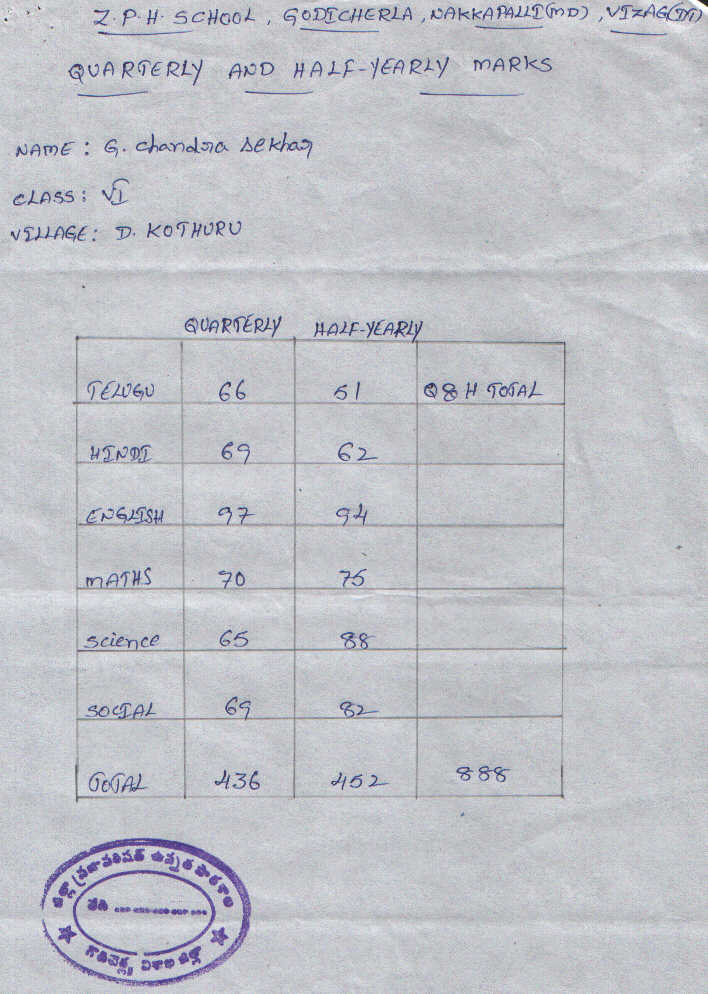 Z.P.H. SCHOOL, GODICHERLA, NAKKAPALLI(MD), VIZAG(DT)
QUARTERLY AND HALF-YEARLY MARKS
NAME: G. Chandra Sekhar
CLASS: VI
VILLAGE: D. KOTHURU
QUARTERLY HALF-YEARLY
TELUGU 66 51 Q & H TOTAL
HINDI 69 62
ENGLISH 97 94
MATHS 70 75
Science 65 88
SOCIAL 69 82
TOTAL 436 452 888
జిల్లా ప్రజాపరిషత్ ఉన్నత పాఠశాల
విశాఖ జిల్లా